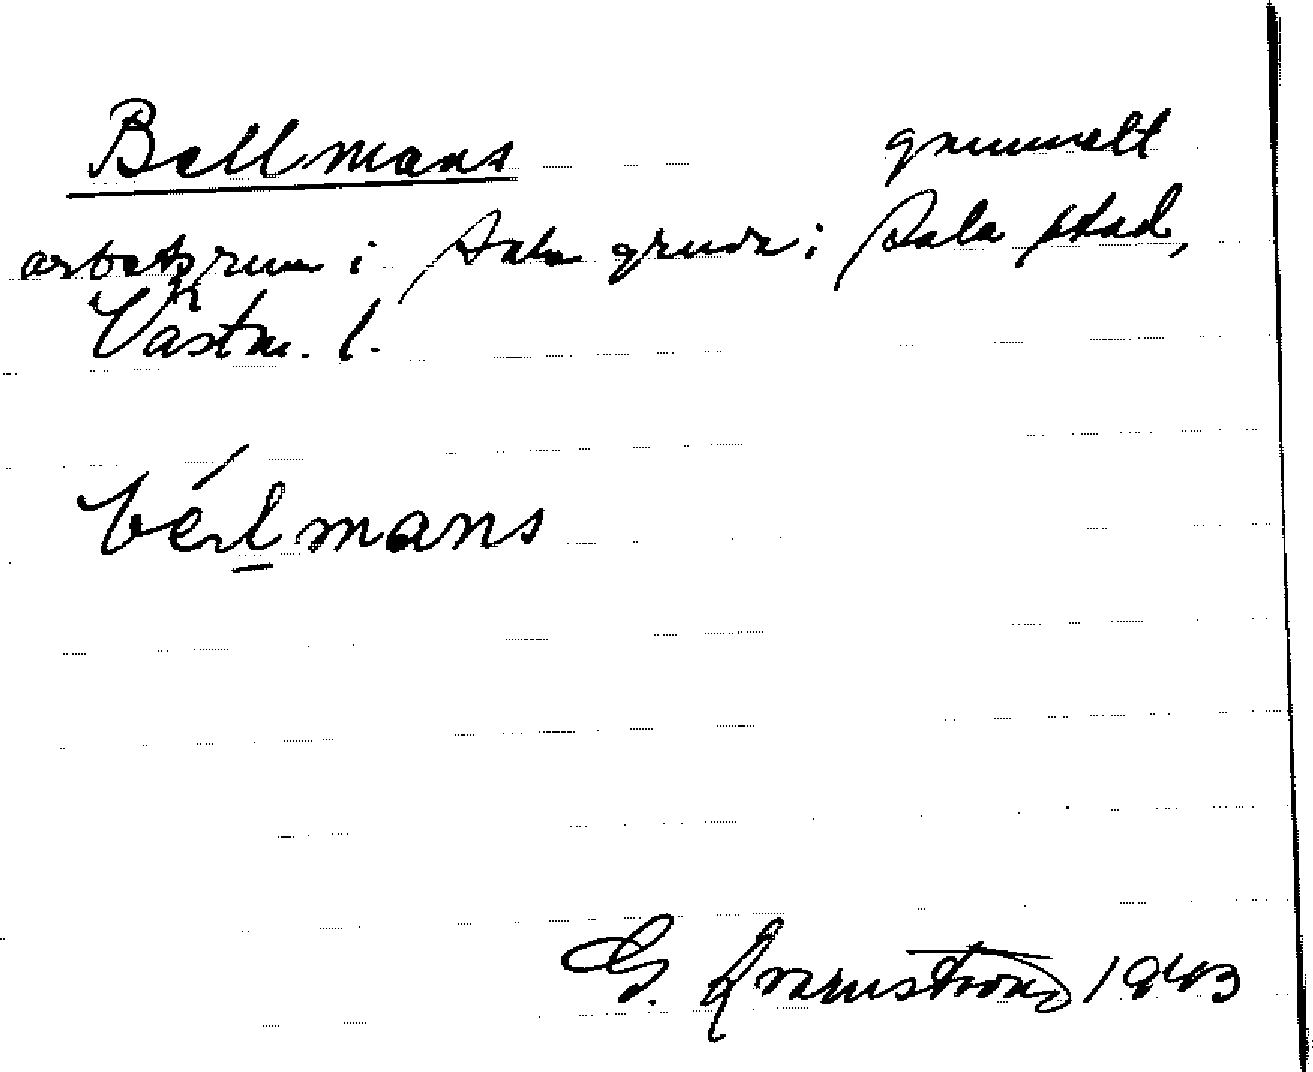 Bellmans gammalt
arbetsrum i Sala gruva i Sala stad,
Västm. l.
bélmans
G. Kvarnström 1943